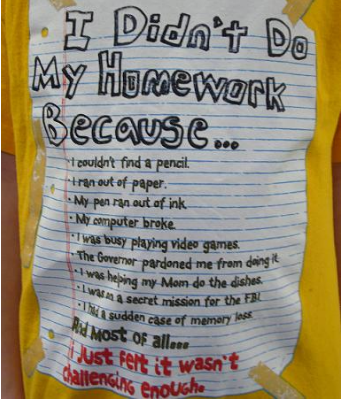 I Didn't Do
My Homework
Because...
· I couldn't find a pencil.
· I ran out of paper.
· My pen ran out of ink
· My computer broke
· I was busy playing video games.
· The Governor pardoned me from doing it.
· I was helping my Mom do the dishes.
· I was on a secret mission for the FBI.
· I had a sudden case of memory loss
And Most of all...
I Just felt it wasn't
challenging enough.